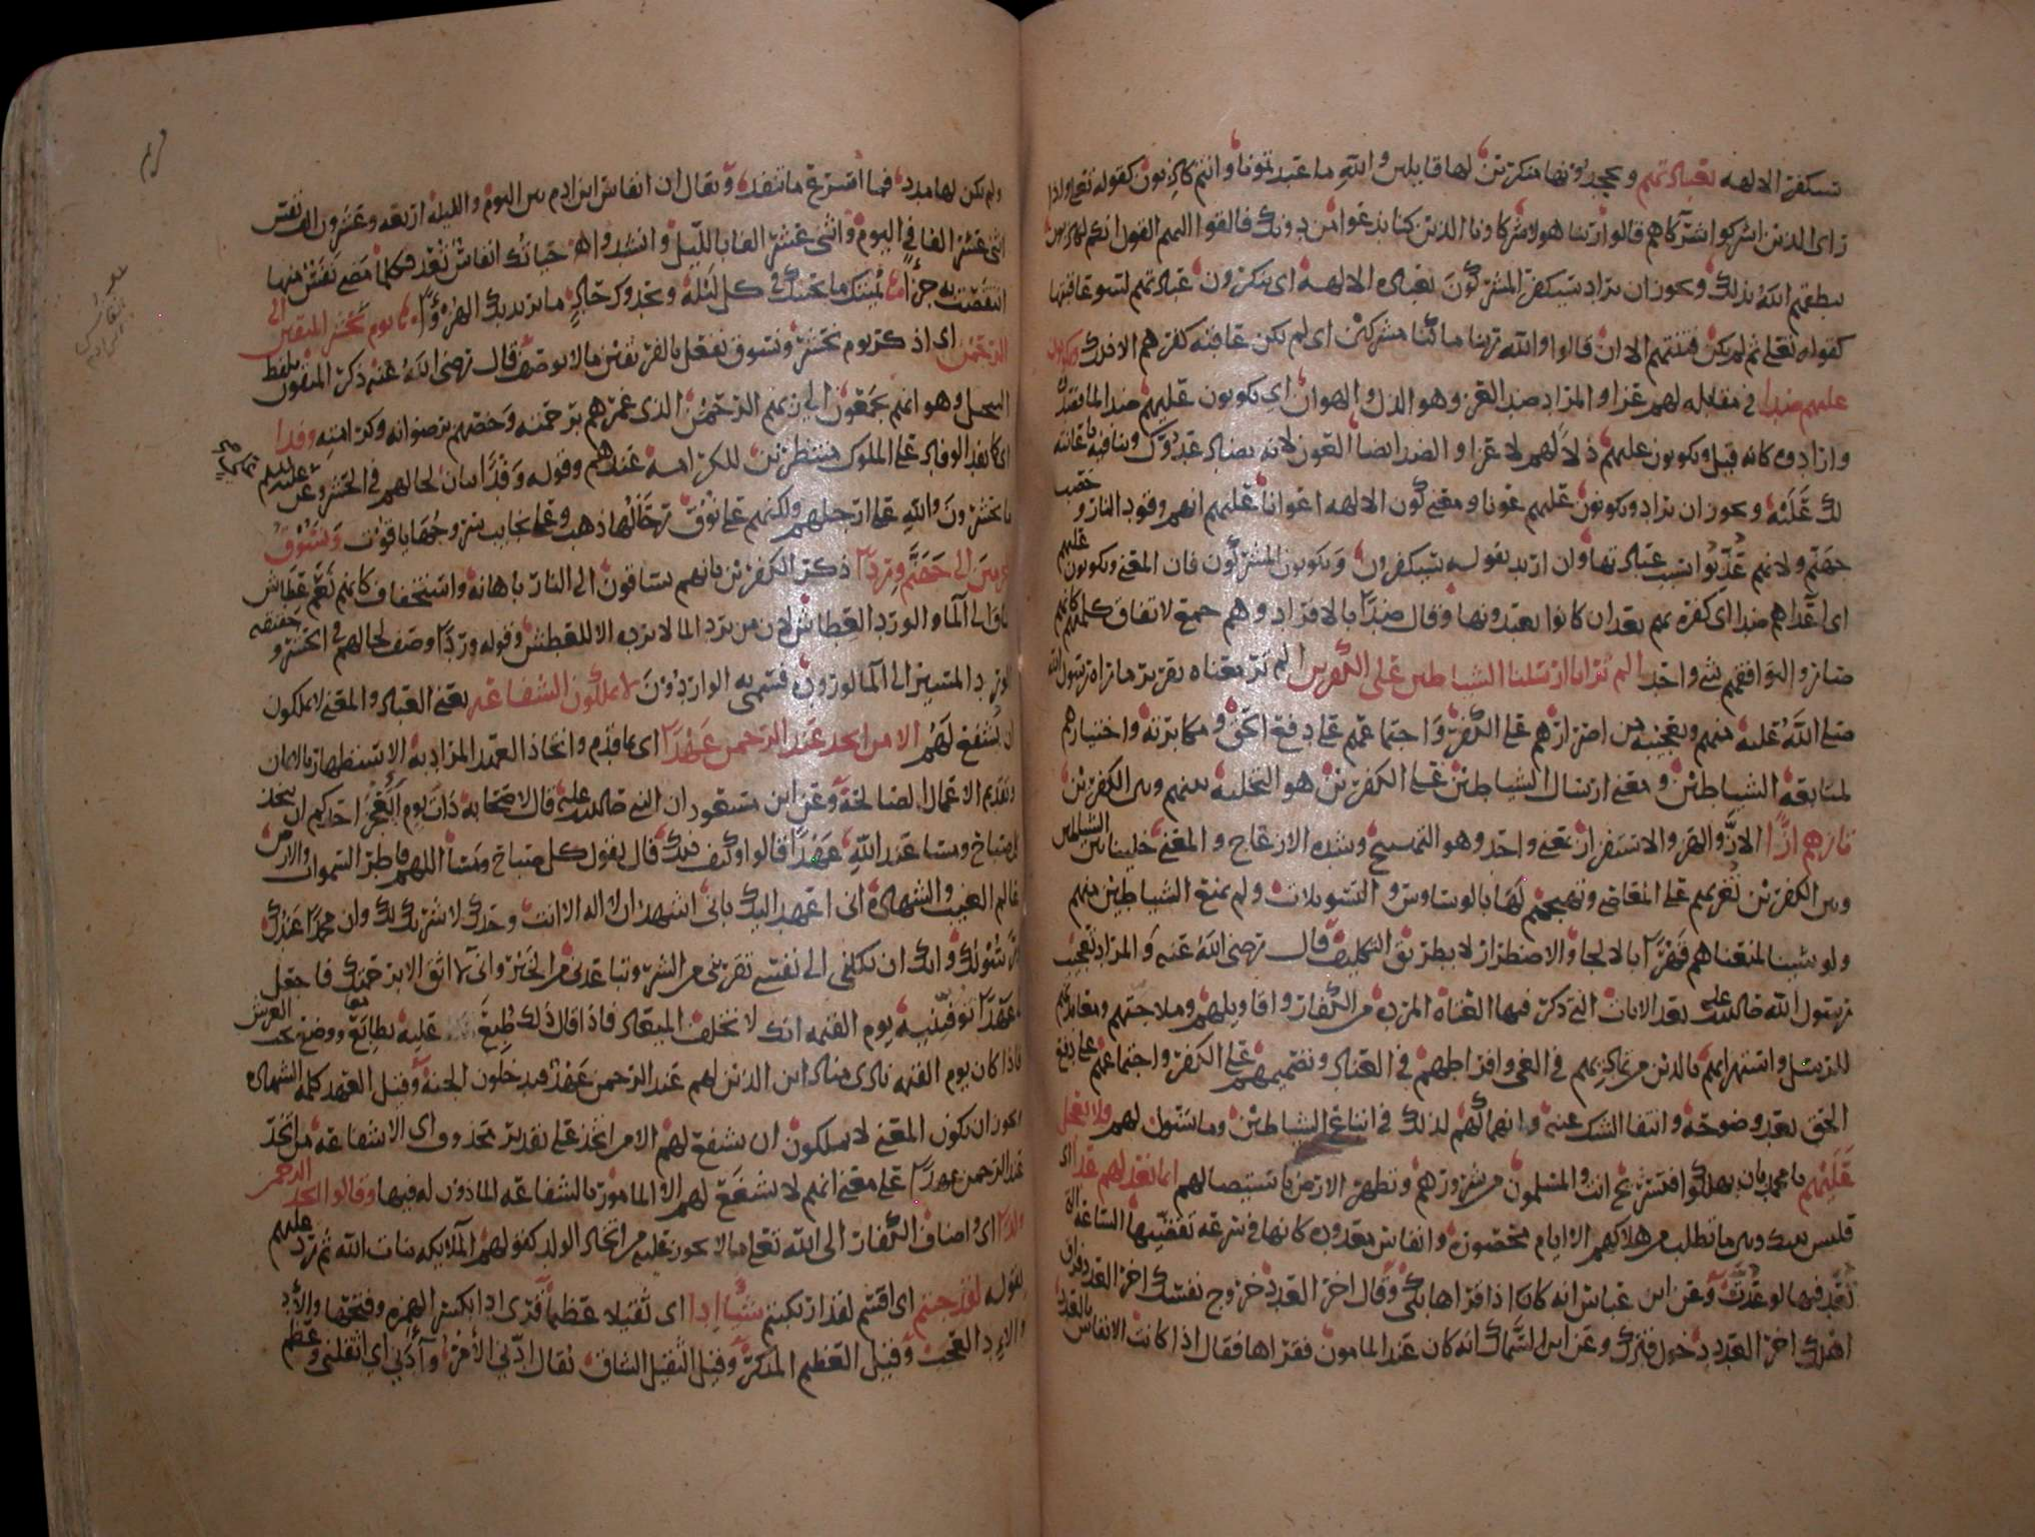 ستكفر الالهه بعبادتهم ويجحدونها منكرين لها قايلين والله ما عبدتمونا وانتم كاذبون كقوله تعلى واذا
راى الذين اشركوا اشركاهم قالوا ربنا هولا شركاونا الذين كنا ندعوا من دونك فالقوا اليهم القول انكم لكاذبون
ينطقهم الله بذلك ويجوز ان يراد سيكفر المشركون بعباده الالهه اى ينكرون عبادتهم لسو عاقبتها
كقوله تعلى ثم لم تكن فتنتهم الا ان قالوا والله ربنا ما كنا مشركين اى لم تكن عاقبه كفرهم الا ذلك ويكونون
عليهم ضدا في مقابله لهم عزا والمراد ضد العز وهو الذل والهوان اى يكونون عليهم ضدا لما قصدوه
وارادوه كانه قيل ويكونون عليهم ذلا لهم لا عزا والضد ايضا العون لانه يضاد عدوك وينافيه باعانته
لك عليه ويجوز ان يراد ويكونون عليهم عونا ومعنى كون الالهه اعوانا عليهم انهم وقود النار وحصب
جهنم ولانهم عذبوا بسبب عبادتها وان اريد بقوله سيكفرون ويكونون المشركون فان المعنى ويكونون عليهم
اى اعداهم ضدا اى كفره بهم بعد ان كانوا يعبدونها وقال ضدا بالافراد وهم جمع لاتفاق كلمتهم كانهم في
تضادهم وتوافقهم شى واحد الم تر انا ارسلنا الشياطين على الكفرين الم تر معناه تقرير ما راه رسول الله
صلى الله عليه منهم وتعجيبه من اصرارهم على الكفر واجتماعهم على دفع الحق ومكابرته واختيارهم
لمتابعه الشياطين ومعنى ارسال الشياطين على الكفرين هو التخليه بينهم وبين الكفرين
تازهم ازا الاز والهز والاستفزاز بمعنى واحد وهو التهييج وشده الازعاج والمعنى خلينا بين الشياطين
وبين الكفرين تغريهم على المعاصي وتهيجهم لها بالوساوس والتسويلات ولم يمنع الشياطين منهم
ولو شينا لمنعناهم قهرا بالالجا والاضطرار لا بطريق التكليف قال رضى الله عنه والمراد تعجيب
رسول الله بعد الايات التي ذكر فيها العتاه المرده من الكفار واقاويلهم وملاجتهم ومعاندتهم
للرسل واستهزايهم بالدين من تماديهم في الغى وافراطهم في العناد وتصميمهم على الكفر واجتماعهم على دفع
الحق بعد وضوحه وانتفا الشك عنه وانهماكهم لذلك في اتباع الشياطين وما تسول لهم ولا تعجل
عليهم يا محمد بان يهلكوا فتستريح انت والمسلمون من شرورهم وتطهر الارض باستيصالهم انما نعد لهم عدا اى
فليس بينك وبين ما تطلب من هلاكهم الا ايام محصوره وانفاس معدوده كانها في سرعه تقضيها الساعة التي
تعد فيها لو عدت وعن ابن عباس انه كان اذا قراها بكى وقال اخر العدد خروج نفسك اخر العدد فراق
اهلك اخر العدد دخول قبرك وعن ابن السماك انه كان عند المامون فقراها فقال اذا كانت الانفاس بالعدد
ولم يكن لها مدد فما اسرع ما تنفد ويقال ان انفاس ابن ادم بين اليوم والليله اربعه وعشرون الف نفس
اثنى عشر الفا في اليوم واثنى عشر الفا بالليل وانشدوا حياتك انفاس تعد فكلما مضى نفس منها
انتقصت به جزا يميتك ما يحييك في كل ليله ويحدوك حاد ما يريد بك الهزوا يوم نحشر المتقين الى
الرحمن اى اذكر يوم نحشر ونسوق نفعل بالفريقين ما لا يوصف قال رضى الله عنه ذكر المتقون بلفظ
التبجيل وهو انهم يجمعون الى ربهم الرحمن الذى غمرهم برحمته وخصهم برضوانه وكرامته وفدا
اى كما يفد الوفاد على الملوك منتظرين للكرامه عندهم وقوله وفدا بيان لحالهم في الحشر وعن علي
ما يحشرون والله على ارجلهم ولكنهم على نوق رحالها ذهب وعلى نجايب سروجها ياقوت ونسوق
المجرمين الى جهنم وردا ذكر الكفرين بانهم يساقون الى النار باهانه واستخفاف كانهم نعم عطاش
تساق الى الما والورد العطاش لان من يرد الما لا يرده الا للعطش وقوله وردا وصف لحالهم في الحشر وحقيقه
الورد المسير الى الما فسمى به الواردون لا يملكون الشفاعه يعنى العباد والمعنى لا يملكون
ان يشفع لهم الا من اتخذ عند الرحمن عهدا اى ما قدم واتخاذ العهد المراد به الاستظهار بالايمان
وتقديم الاعمال الصالحة وعن ابن مسعود ان النبي قال لاصحابه ذات يوم ايعجز احدكم ان يتخذ
كل صباح ومسا عند الله عهدا قالوا وكيف ذلك قال يقول كل صباح ومسا اللهم فاطر السموات والارض
عالم الغيب والشهاده انى اعهد اليك بانى اشهد ان لا اله الا انت وحدك لا شريك لك وان محمدا عبدك
ورسولك وانك ان تكلنى الى نفسى تقربنى من الشر وتباعدنى من الخير وانى لا اثق الا برحمتك فاجعل
لي عهدا توفينيه يوم القيمه انك لا تخلف الميعاد فاذا قال ذلك طبع عليه بطابع ووضع تحت العرش
فاذا كان يوم القيمه نادى مناد اين الذين لهم عند الرحمن عهد فيدخلون الجنة وقيل العهد كلمه الشهاده
ويجوز ان يكون المعنى لا يملكون ان يشفع لهم الا من اتخذ على تقدير محذوف اى الا شفاعه من اتخذ
عند الرحمن عهدا على معنى انهم لا يشفع لهم الا المامور بالشفاعه الماذون له فيها وقالوا اتخذ الرحمن
ولدا اى واضاف الكفار الى الله تعلى ما لا يجوز عليه من اتخاذ الولد كقولهم الملايكه بنات الله ثم رد عليهم
بقوله لقد جيتم اى اقسم لقد ارتكبتم شيا ادا اى ثقيلا عظيما قرى ادا بكسر الهمزه وفتحها والاد
والاد العجب وقيل العظيم المنكر وقيل الثقيل الشاق يقال ادنى الامر وآدنى اى اثقلنى وعظم